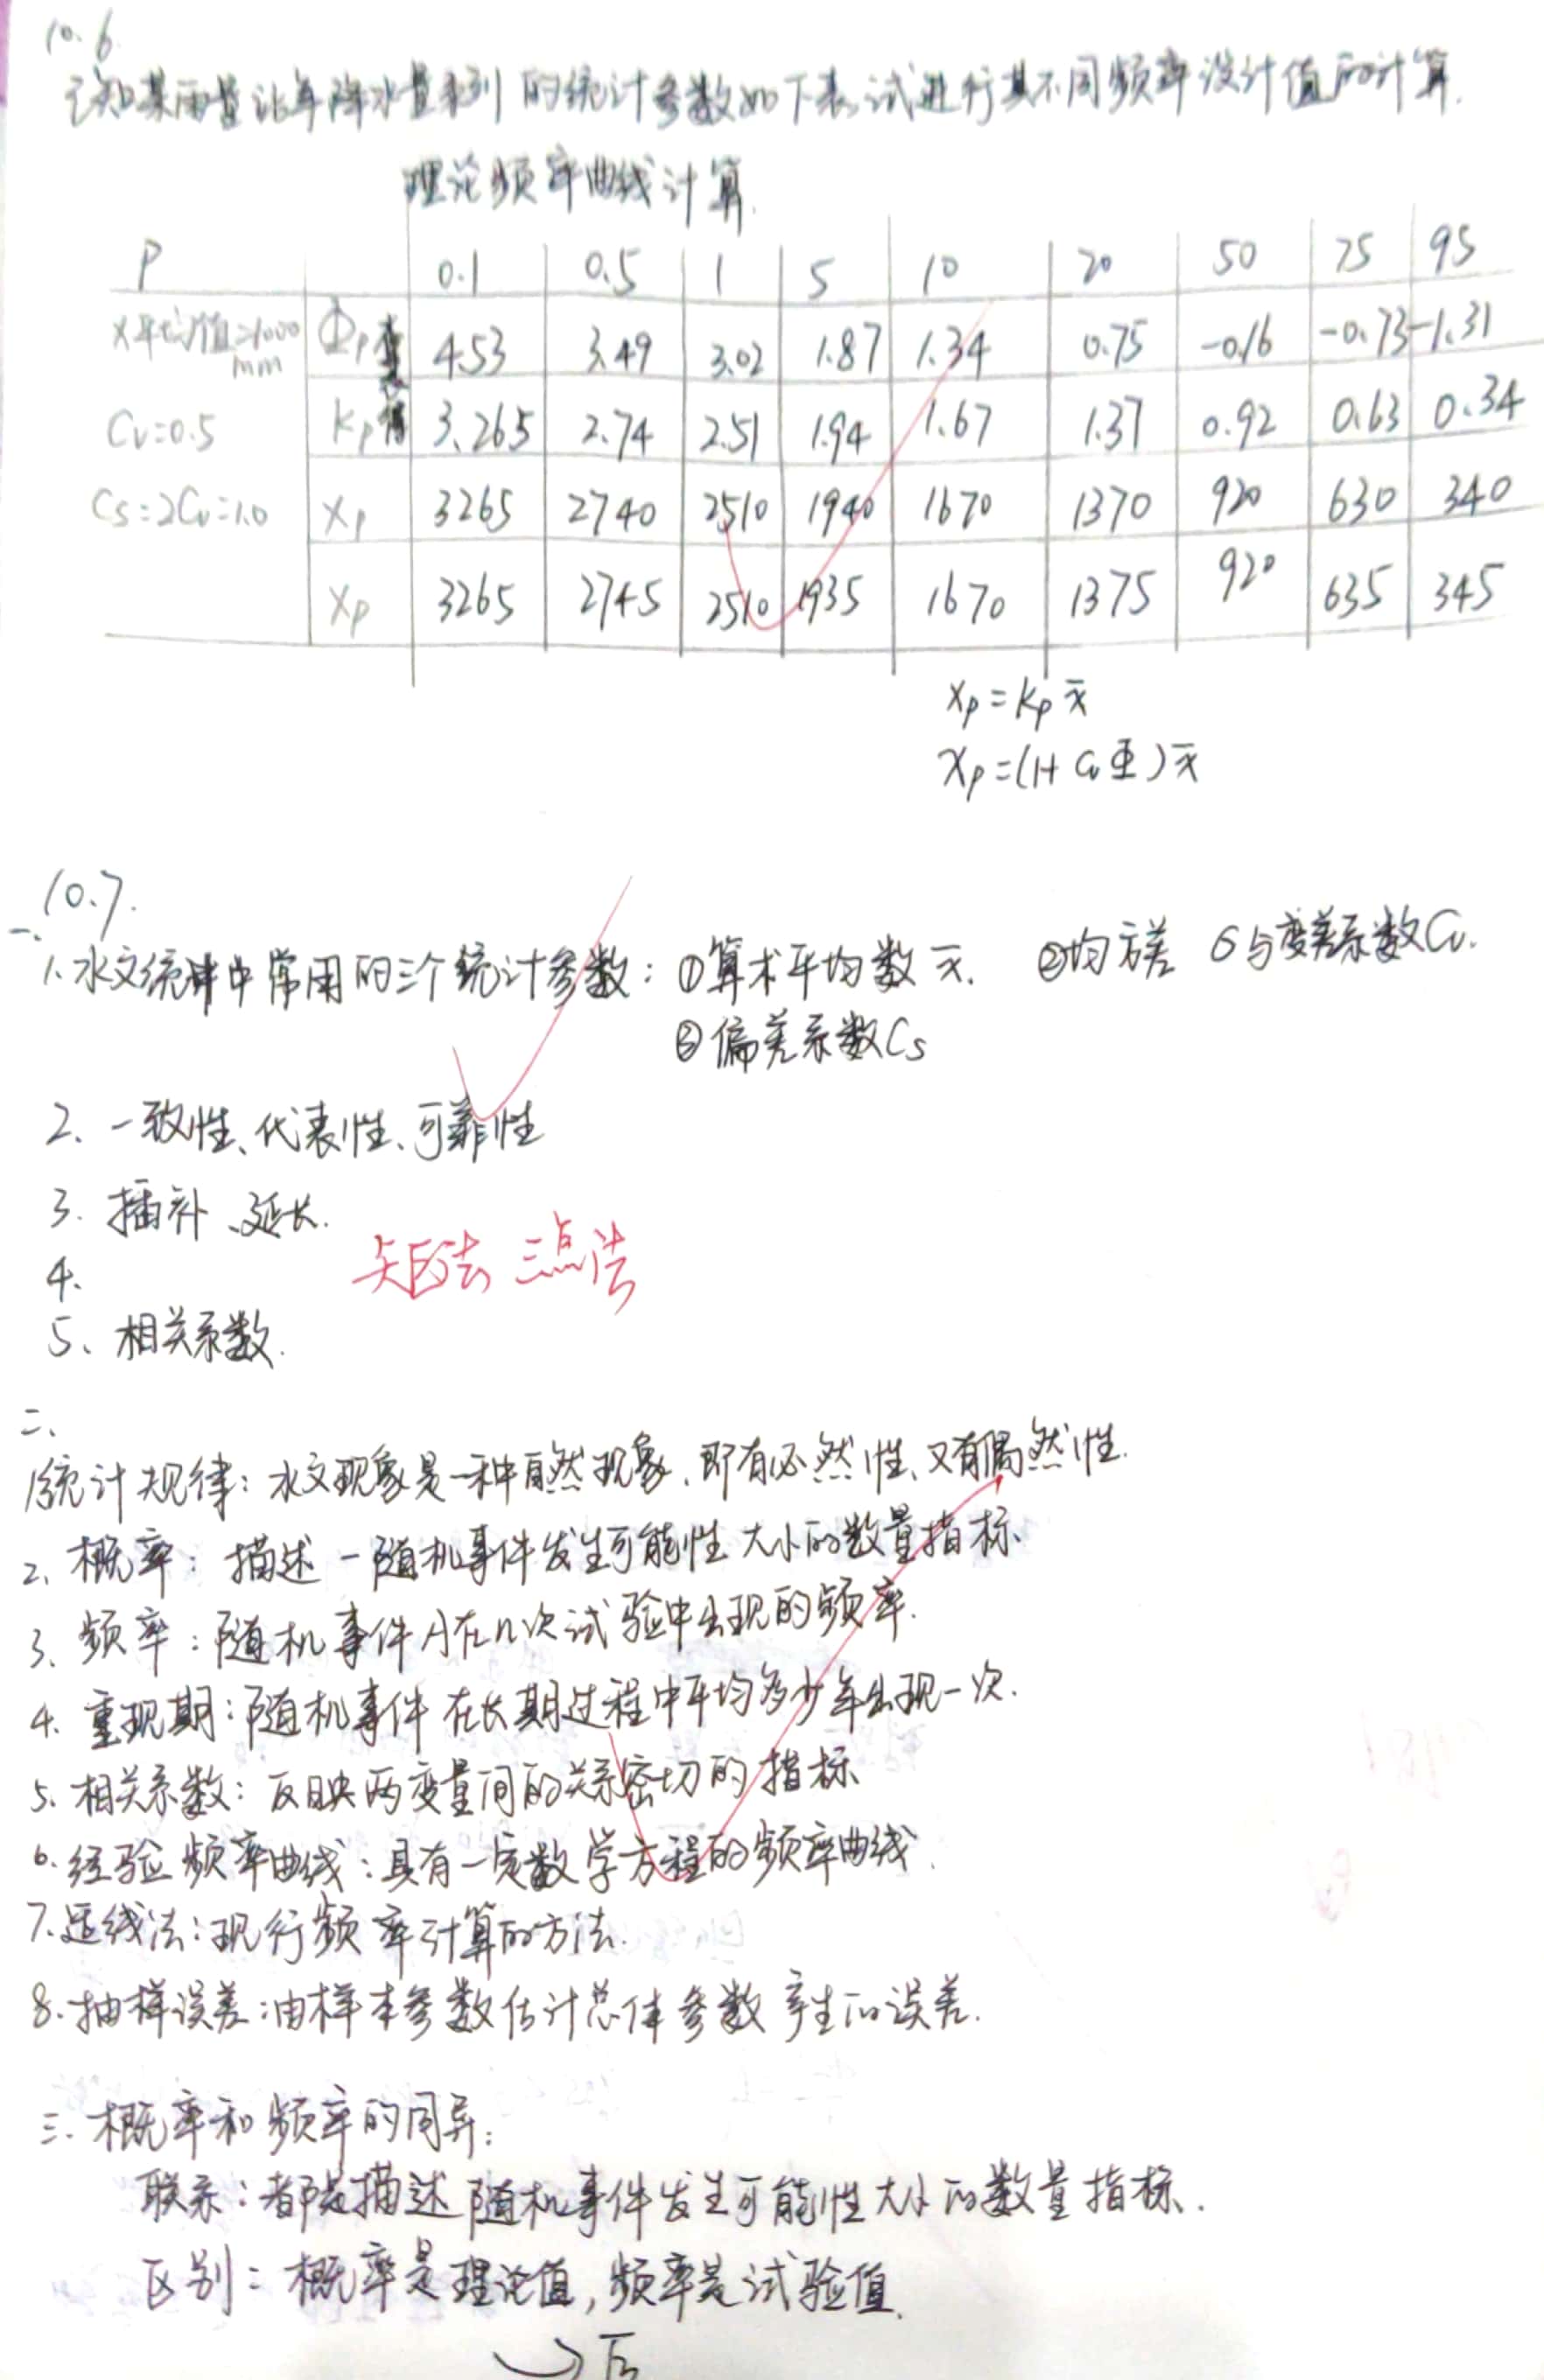 10.6
已知某雨量站年降水量系列的统计参数如下表,试进行其不同频率设计值的计算.
理论频率曲线计算.
P 0.1 0.5 1 5 10 20 50 75 95
x平均值=1000mm Φp 4.53 3.49 3.02 1.87 1.34 0.75 -0.16 -0.73 -1.31
Cv=0.5 Kp 3.265 2.74 2.51 1.94 1.67 1.37 0.92 0.63 0.34
Cs=2Cv=1.0 Xp 3265 2740 2510 1940 1670 1370 920 630 340
Xp 3265 2745 2510 1935 1670 1375 920 635 345
xp=Kp x̄
xp=(1+CvΦ)x̄
10.7.
一、
1.水文统计中常用的三个统计参数:①算术平均数x̄. ②均方差 σ与变差系数Cv.
③偏差系数Cs
2、一致性、代表性、可靠性
3.插补、延长.
4. 矩法 三点法
5、相关系数.
二、
1统计规律:水文现象是一种自然现象、即有必然性、又有偶然性.
2、概率:描述一随机事件发生可能性大小的数量指标.
3、频率:随机事件A在n次试验中出现的频率.
4.重现期:随机事件在长期过程中平均多少年出现一次.
5.相关系数:反映两变量间的关系密切的指标
6.经验频率曲线:具有一定数学方程的频率曲线.
7.适线法:现行频率计算的方法.
8.抽样误差:由样本参数估计总体参数产生的误差.
三.概率和频率的同异:
联系:都是描述随机事件发生可能性大小的数量指标.
区别:概率是理论值,频率是试验值.